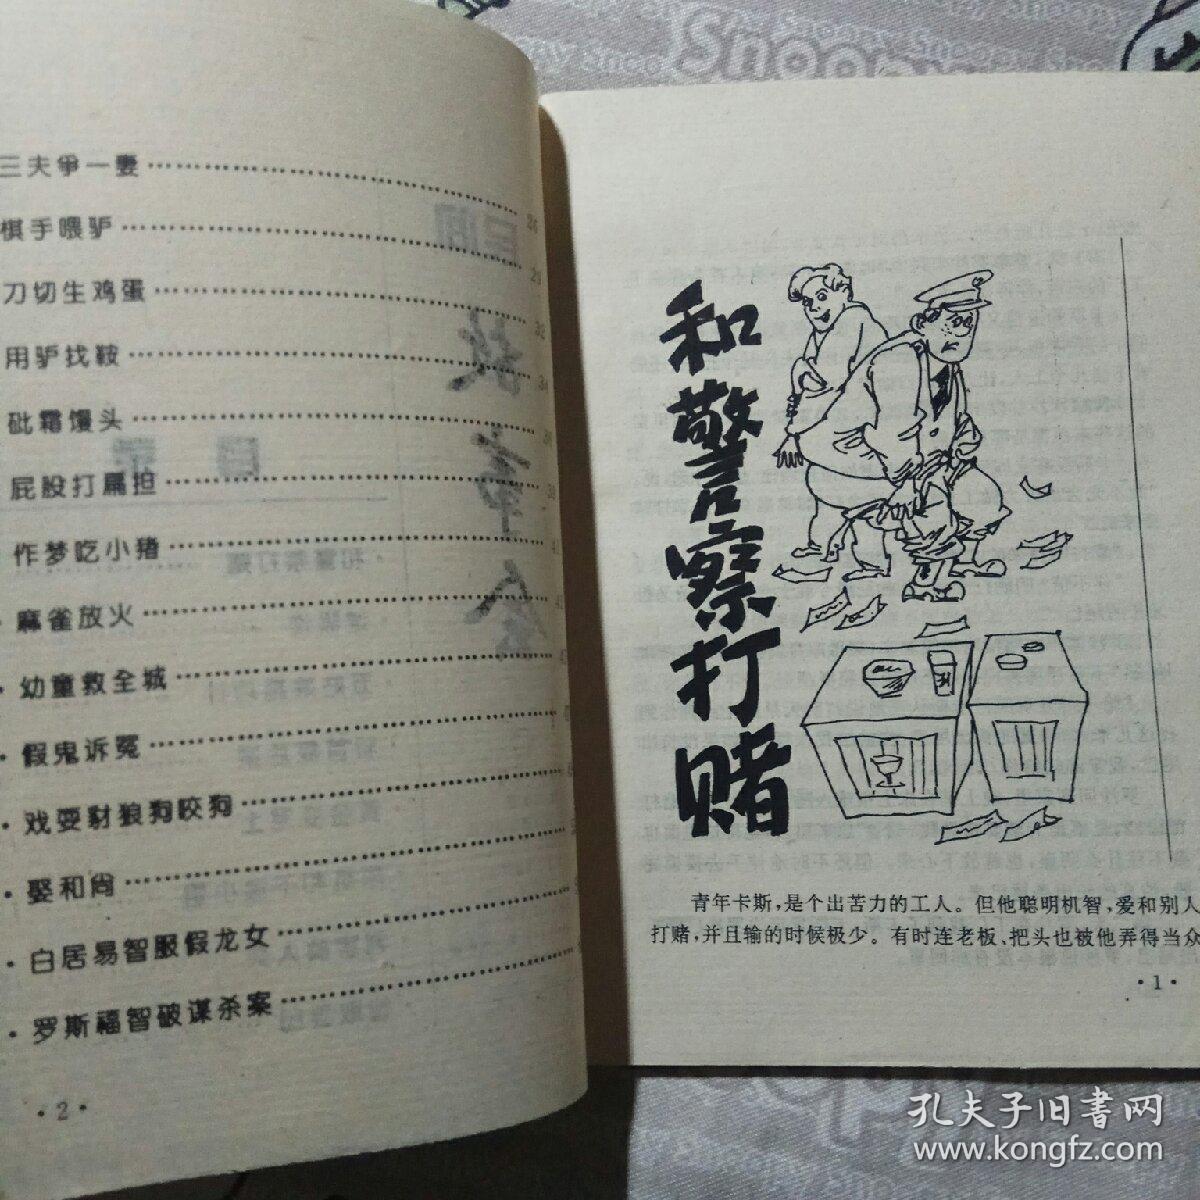 三夫争一妻……26
棋手喂驴……29
刀切生鸡蛋……32
用驴找鞍……34
砒霜馒头……36
屁股打扁担……38
作梦吃小猪……41
麻雀放火……42
·幼童救全城……
·假鬼诉冤……
·戏耍豺狼狗咬狗……
·娶和尚……
·白居易智服假龙女……
·罗斯福智破谋杀案……
·2·
和警察打赌
青年卡斯，是个出苦力的工人。但他聪明机智，爱和别人
打赌，并且输的时候极少。有时连老板、把头也被他弄得当众
·1·
Snoopy
孔夫子旧书网
www.kongfz.com